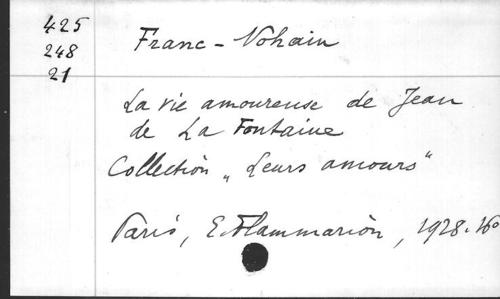 425
248
21
Franc-Nohain
La vie amoureuse de Jean
de La Fontaine
Collection „Leurs amours“
Paris, E. Flammarion, 1928. 16o